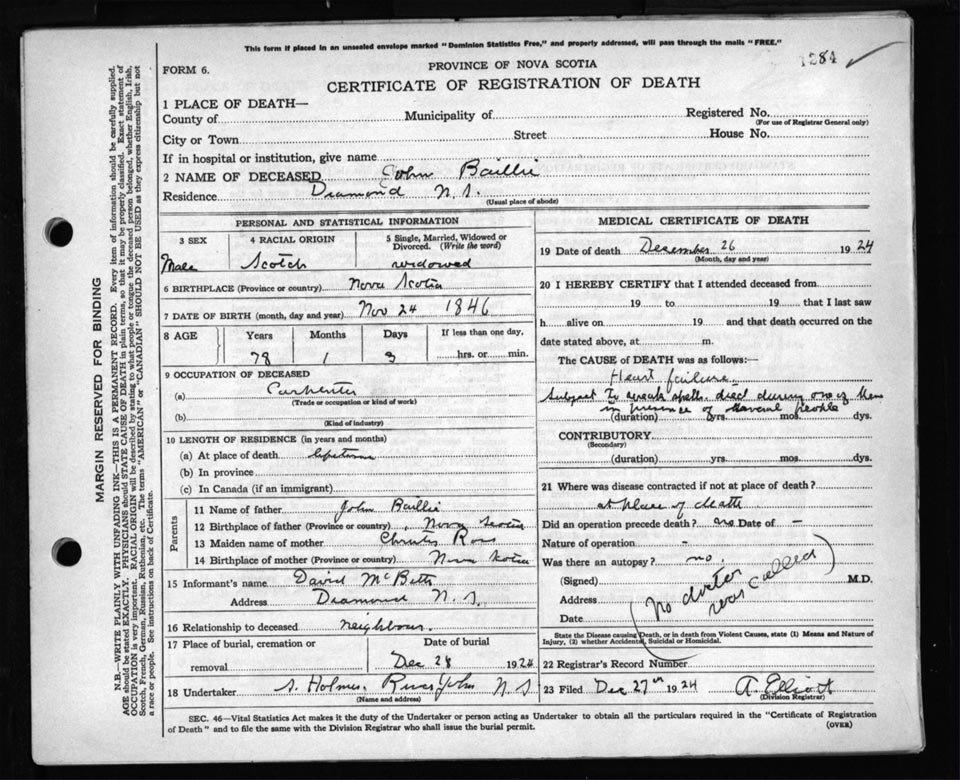 This form if placed in an unsealed envelope marked "Dominion Statistics Free," and properly addressed, will pass through the mails "FREE."
1284
FORM 6.
PROVINCE OF NOVA SCOTIA
CERTIFICATE OF REGISTRATION OF DEATH
1 PLACE OF DEATH—
County of Municipality of Registered No.
(For use of Registrar General only)
City or Town Street House No.
If in hospital or institution, give name
2 NAME OF DECEASED John Baillie
Residence Diamond N.S.
(Usual place of abode)
PERSONAL AND STATISTICAL INFORMATION
3 SEX 4 RACIAL ORIGIN 5 Single, Married, Widowed or Divorced. (Write the word)
Male Scotch widowed
6 BIRTHPLACE (Province or country) Nova Scotia
7 DATE OF BIRTH (month, day and year) Nov 24 1846
8 AGE Years Months Days If less than one day,
78 1 3 hrs. or min.
9 OCCUPATION OF DECEASED
(a) Carpenter
(Trade or occupation or kind of work)
(b)
(Kind of industry)
10 LENGTH OF RESIDENCE (in years and months)
(a) At place of death lifetime
(b) In province
(c) In Canada (if an immigrant)
Parents
11 Name of father John Baillie
12 Birthplace of father (Province or country) Nova Scotia
13 Maiden name of mother Ross
14 Birthplace of mother (Province or country) Nova Scotia
15 Informant's name David McBeth
Address Diamond N.S.
16 Relationship to deceased neighbour.
17 Place of burial, cremation or Date of burial
removal Dec 28 1924
18 Undertaker S. Holmes, River John N S
(Name and address)
MEDICAL CERTIFICATE OF DEATH
19 Date of death December 26 1924
(Month, day and year)
20 I HEREBY CERTIFY that I attended deceased from
19 to 19 that I last saw
h alive on 19 and that death occurred on the
date stated above, at m.
The CAUSE of DEATH was as follows:
Heart failure
subject to weak spells. died during one of them
in presence of several people
(duration) yrs. mos. dys.
CONTRIBUTORY
(Secondary)
(duration) yrs. mos. dys.
21 Where was disease contracted if not at place of death?
at place of death
Did an operation precede death? no Date of —
Nature of operation -
Was there an autopsy? no.
(Signed) M.D.
Address
Date
(No doctor was called)
State the Disease causing Death, or in death from Violent Causes, state (1) Means and Nature of
Injury, (2) whether Accidental, Suicidal or Homicidal.
22 Registrar's Record Number
23 Filed Dec 27th 1924 A. Elliott
(Division Registrar)
SEC. 46—Vital Statistics Act makes it the duty of the Undertaker or person acting as Undertaker to obtain all the particulars required in the "Certificate of Registration
of Death" and to file the same with the Division Registrar who shall issue the burial permit.
(OVER)
MARGIN RESERVED FOR BINDING
N.B.—WRITE PLAINLY WITH UNFADING INK—THIS IS A PERMANENT RECORD. Every item of information should be carefully supplied.
AGE should be stated EXACTLY. PHYSICIANS should STATE CAUSE OF DEATH in plain terms, so that it may be properly classified. Exact statement of
OCCUPATION is very important. RACIAL ORIGIN will be described by stating to what people or tongue the deceased person belonged, whether English, Irish,
Scotch, French, German, Russian, Ruthenian, etc. The terms "AMERICAN" or "CANADIAN" SHOULD NOT BE USED as they express citizenship but not
a race or people. See instructions on back of Certificate.